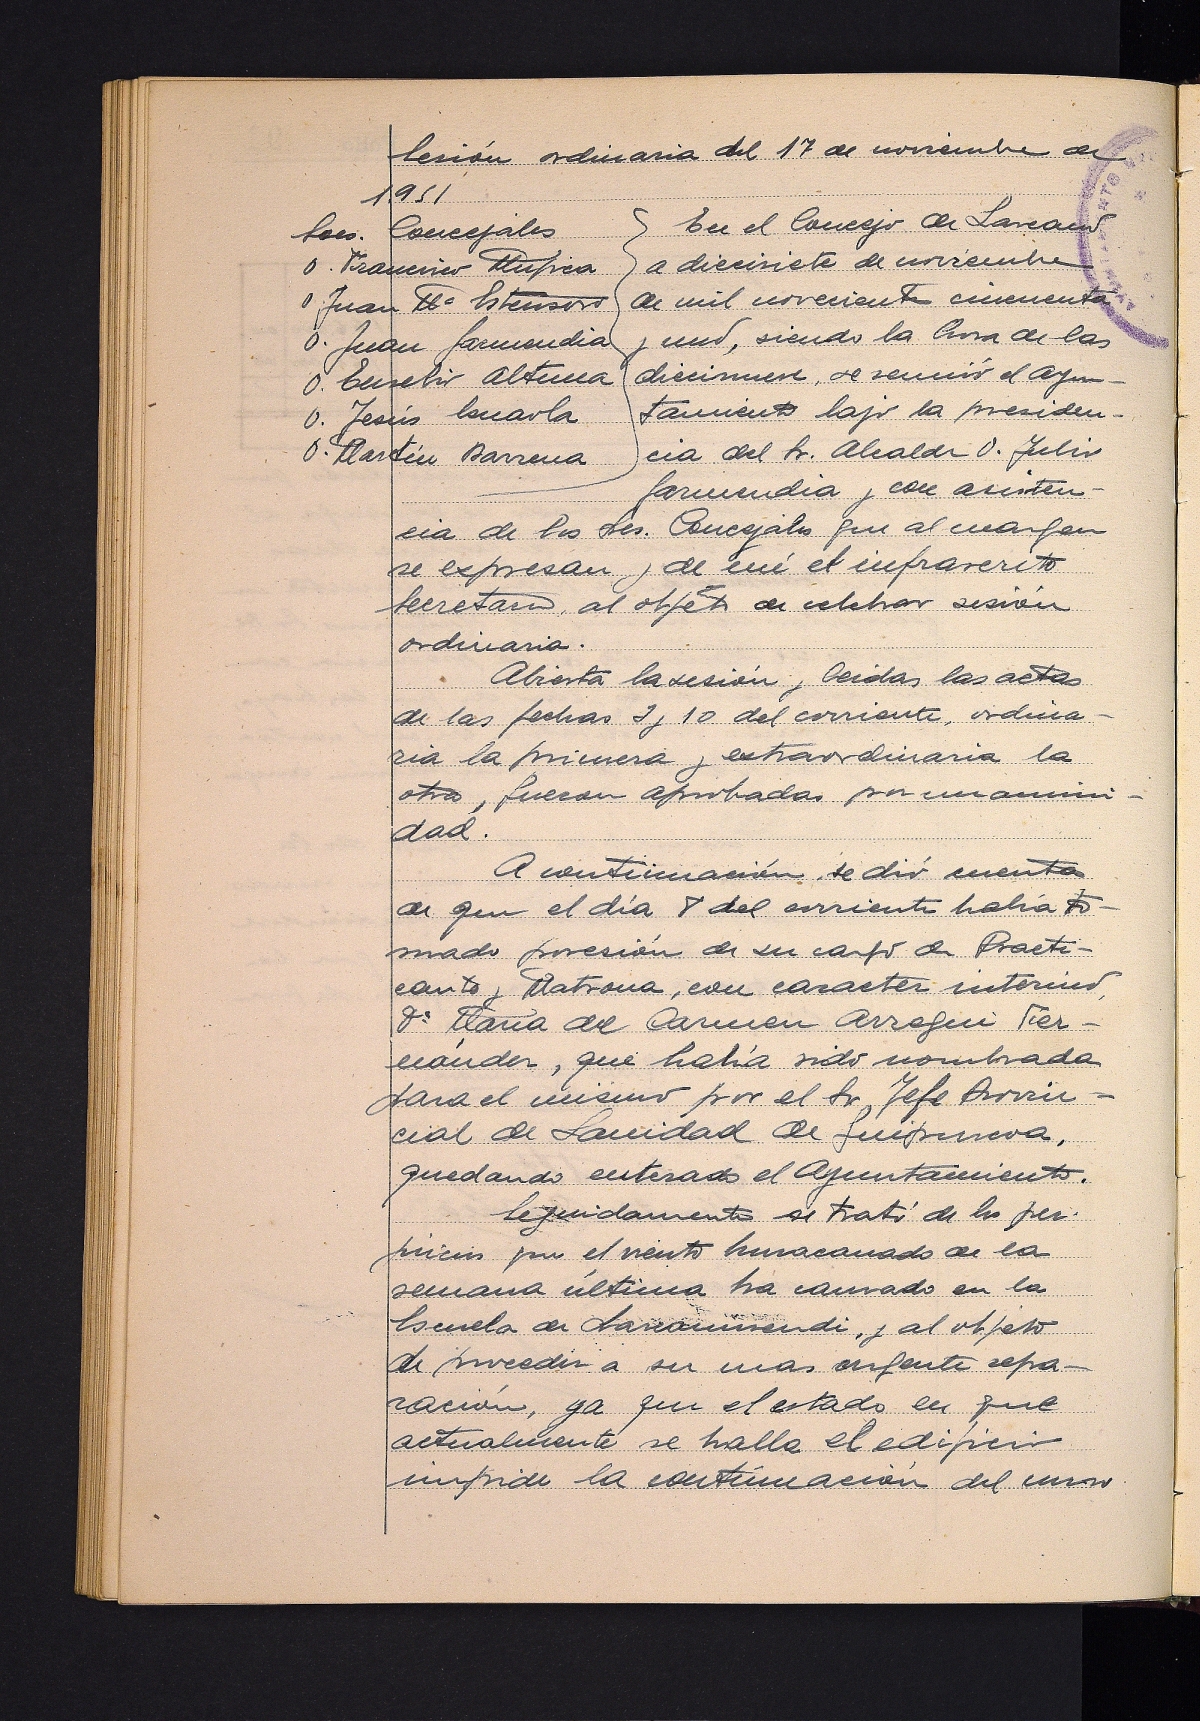 Sesión ordinaria del 17 de noviembre de
1951
Sres. Concejales
D. Francisco Mujica
D. Juan Mª Ostensoro
D. Juan Garmendia
D. Eusebio Altuna
D. Jesús Esnaola
D. Martín Barrena
En el Concejo de Larraul
a diecisiete de noviembre
de mil novecientos cincuenta
y uno, siendo la hora de las
diecinueve, se reunió el Ayun-
tamiento bajo la presiden-
cia del Sr. Alcalde D. Julio
Garmendia y con asisten-
cia de los Sres. Concejales que al margen
se expresan y de mí el infrascrito
Secretario, al objeto de celebrar sesión
ordinaria.
Abierta la sesión y leidas las actas
de las fechas 3 y 10 del corriente, ordina-
ria la primera y extraordinaria la
otra, fueron aprobadas por unanimi-
dad.
A continuación se dió cuenta
de que el día 8 del corriente había to-
mado posesión de su cargo de Practi-
canto y Matrona, con caracter interino,
Dª María del Carmen Arregui Fer-
nández, que había sido nombrada
para el mismo por el Sr. Jefe Provin-
cial de Sanidad de Guipuzcoa,
quedando enterado el Ayuntamiento.
Seguidamente se trató de los per-
juicios que el viento huracanado de la
semana última ha causado en la
Escuela de y al objeto
de proceder a su mas urgente repa-
ración, ya que el estado en que
actualmente se halla el edificio
impide la continuación del curso
AYUNTAMIENTO